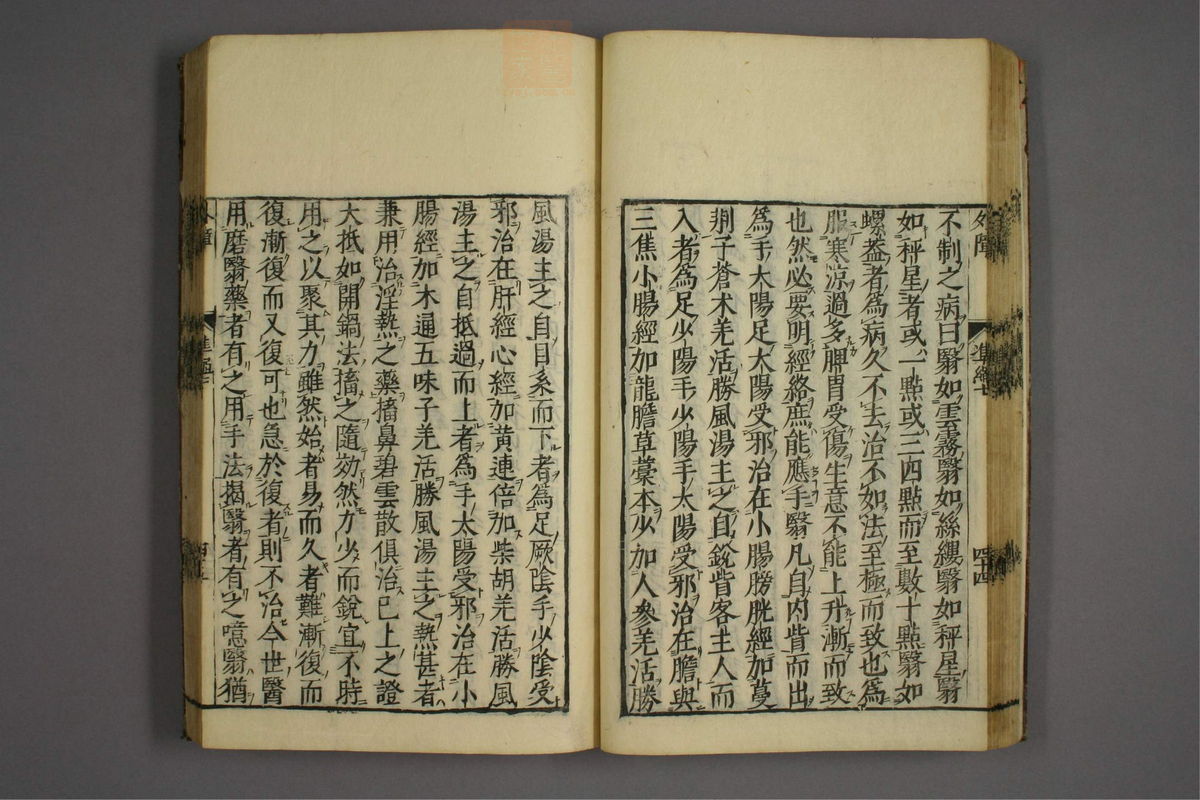 不制之病曰翳如雲霧翳如絲縷翳如秤星翳
如秤星者或一點或三四點而至數十點翳如
螺蓋者為病久不去治不如法至極而致也為
服寒涼過多脾胃受傷生意不能上升漸而致
也然必要明經絡庶能應手翳凡自内眥而出
為手太陽足太陽受邪治在小腸膀胱經加蔓
荆子蒼术羌活勝風湯主之自銳眥客主人而
入者為足少陽手少陽手太陽受邪治在膽與
三焦小腸經加龍膽草藁本少加人參羌活勝
風湯主之自目系而下者為足厥陰手少陰受
邪治在肝經心經加黄連倍加柴胡羌活勝風
湯主之自抵過而上者為手太陽受邪治在小
腸經加木通五味子羌活勝風湯主之熱甚者
兼用治淫熱之藥搐鼻碧雲散俱治已上之證
大抵如開鍋法搐之隨効然力少而銳宜不時
用之以聚其力雖然始者易而久者難漸復而
復漸復而又復可也急於復者則不治今世醫
用磨翳藥者有之用手法揭翳者有之噫翳猶